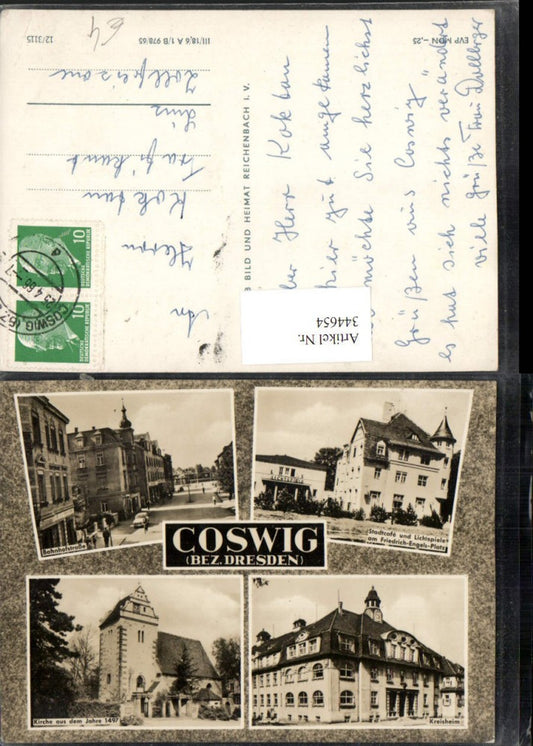 12/3115
III/18/6 A 1/B 978/65
EVP MDN -,25
BILD UND HEIMAT REICHENBACH I. V.
Herr Koktan
hier gut angekommen
möchte Sie herzlichst
Grüßen aus Coswig
es hat sich nichts verändert
viele Grüße Frau
An
Herrn
Koktan
Trafikant
Linz
64
10
DEUTSCHE
DEMOKRATISCHE REPUBLIK
10
DEUTSCHE
DEMOKRATISCHE REPUBLIK
COSWIG
Artikel Nr.
344654
Bahnhofstraße
Stadtcafé und Lichtspiele
am Friedrich-Engels-Platz
COSWIG
(BEZ. DRESDEN)
Kirche aus dem Jahre 1497
Kreisheim